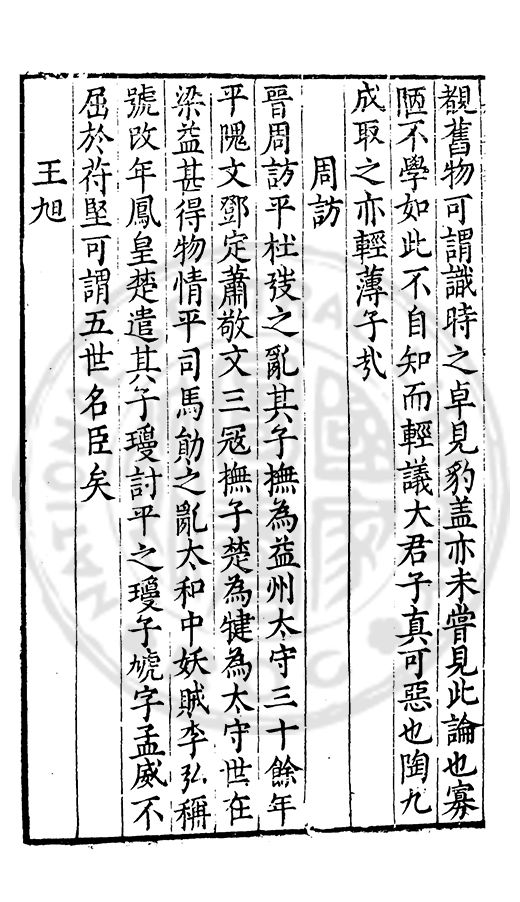 覩舊物可謂識時之卓見豹盖亦未甞見此論也寡
陋不學如此不自知而輕議大君子真可惡也陶九
成取之亦輕薄子㢤
周訪
晉周訪平杜弢之亂其子撫為益州太守三十餘年
平隗文鄧定蕭敬文三冦撫子楚為犍為太守世在
梁益甚得物情平司馬勛之亂太和中妖賊李弘稱
號改年鳳皇楚遣其子瓊討平之瓊子虓字孟威不
屈於苻堅可謂五世名臣矣
王旭